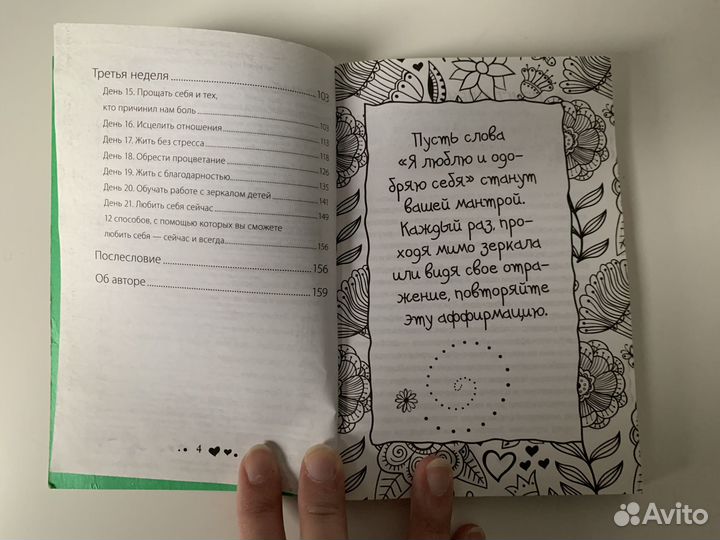 Третья неделя 103
День 15. Прощать себя и тех,
кто причинил нам боль 103
День 16. Исцелить отношения 113
День 17. Жить без стресса 118
День 18. Обрести процветание 126
День 19. Жить с благодарностью 135
День 20. Обучать работе с зеркалом детей 141
День 21. Любить себя сейчас 149
12 способов, с помощью которых вы сможете
любить себя — сейчас и всегда 156
Послесловие 156
Об авторе 159
4
Пусть слова
«Я люблю и одо-
бряю себя» станут
вашей мантрой.
Каждый раз, про-
ходя мимо зеркала
или видя свое отра-
жение, повторяйте
эту аффирмацию.
Avito